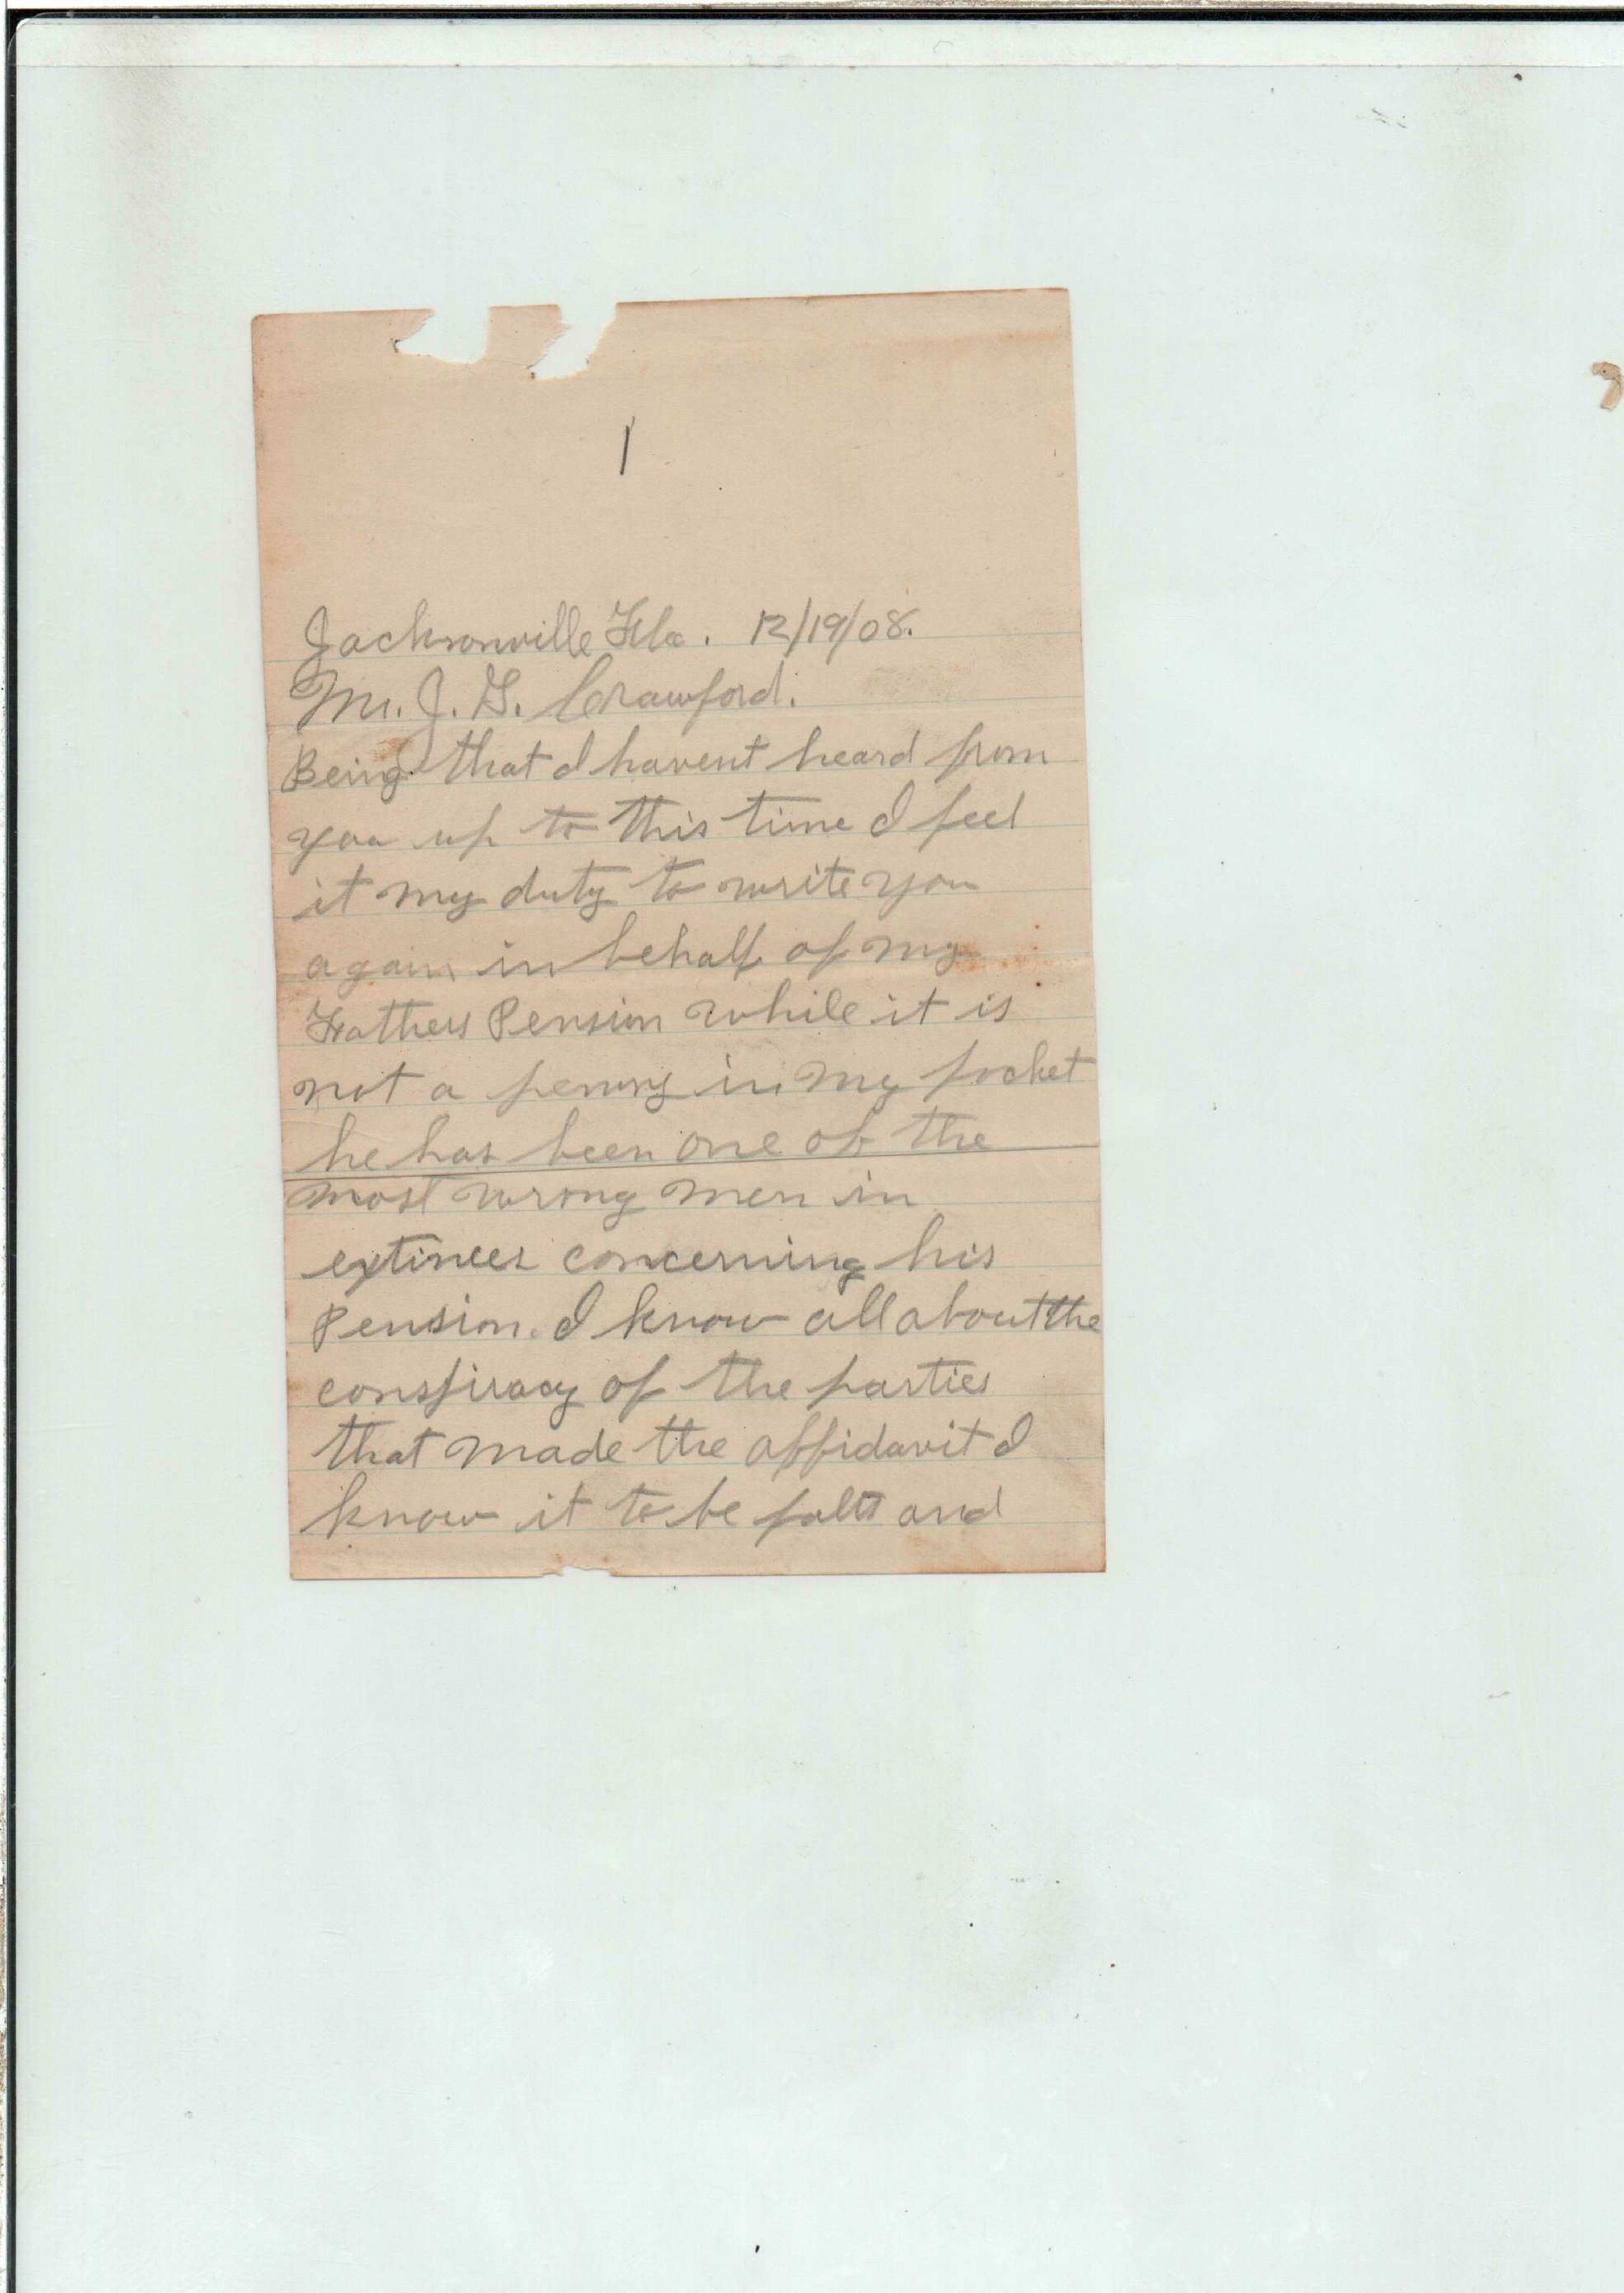 1
Jacksonville Fla. 12/19/08.
Mr. J. G. Crawford.
Being that I havent heard from
you up to this time I feel
it my duty to write you
again in behalf of my
Fathers Pension while it is
not a penny in my pocket
he has been one of the
most wrong men in
extinces concerning his
Pension. I know all about the
conspiracy of the parties
that made the affidavit I
know it to be falts and